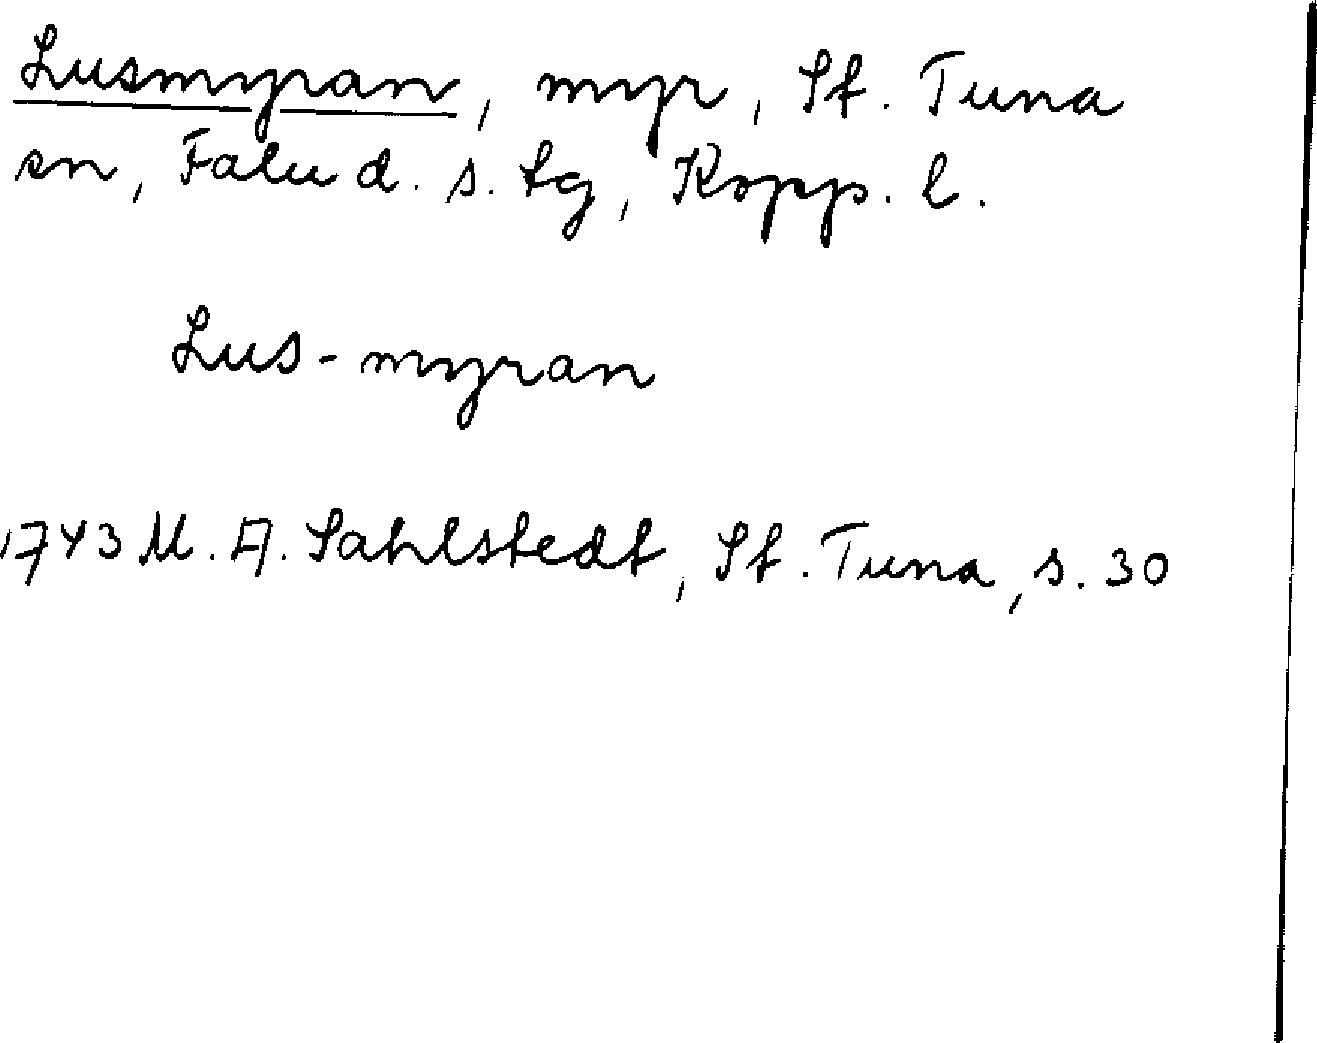 Lusmyran, myr, St. Tuna
sn, Falu d. s. tg, Kopp. l.
Lus-myran
1743 M. A. Sahlstedt, St. Tuna, s. 30